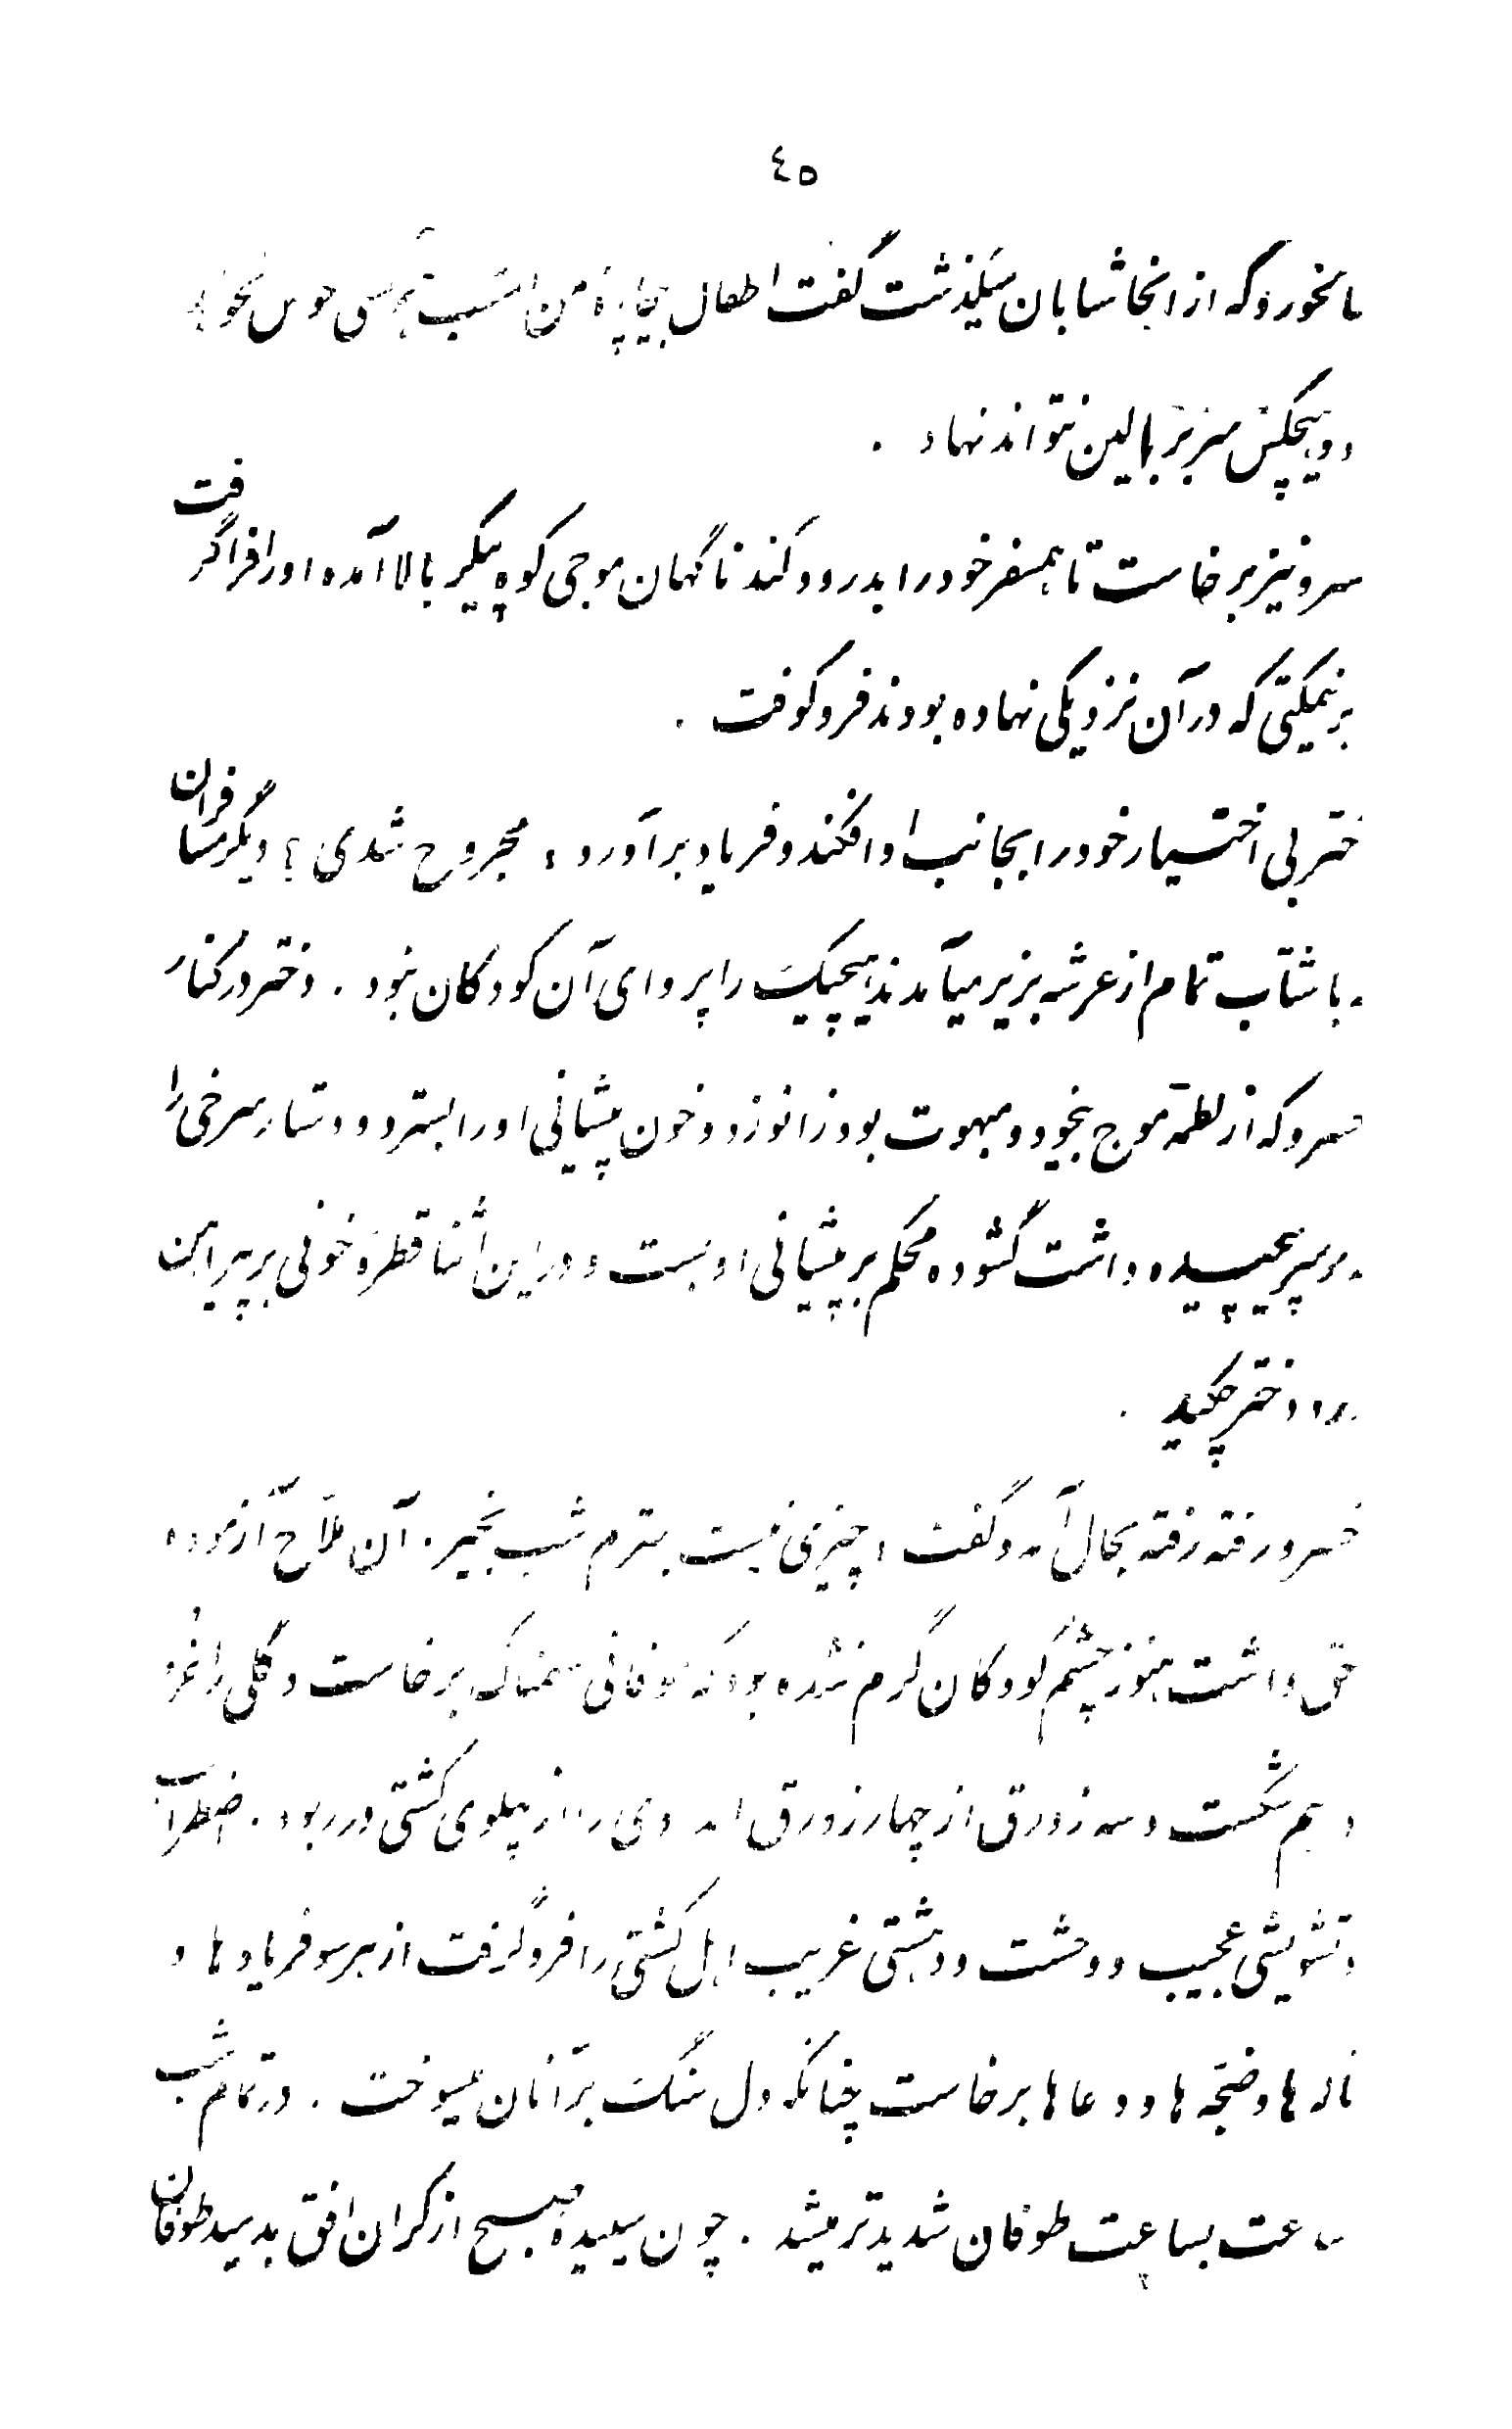 ٤٥
نخورد که از آنجا شتابان میگذشت گفت اطفال بیچاره من امشب
و هیچکس سر بر بالین نتواند نهاد .
خسرو نیز برخاست تا همسفر خود را بدرود کند ناگهان موجی کوه پیکر بالا آمده او را فرا گرفت
بر نیمکتی که در آن نزدیکی نهاده بودند فرو کوفت .
دختر بی اختیار خود را بجانب او افکند و فریاد برآورد ، مجروح شدی ؟ دیگر مسافران
با شتاب تمام از عرشه بزیر میآمدند هیچیک را پروای آن کودکان نبود . دختر در کنار
خسرو که از لطمه موج بیخود و مبهوت بود زانو زد و خون پیشانی او را بسترد و دستار سرخی را
بر سر پیچیده داشت گشوده محکم بر پیشانی او بست و در این اثنا قطره خونی بر پیراهن
دختر چکید .
خسرو رفته رفته بحال آمد و گفت ، چیزی نیست بهترم شب بخیر . آن ملاح آزموده
حق داشت هنوز چشم کودکان گرم نشده بود که طوفانی سهمناک برخاست و دکلی را
در هم شکست و سه زورق از چهار زورق را از پهلوی کشتی در ربود . اضطراب
و تشویشی عجیب و وحشت و دهشتی غریب اهل کشتی را فرو گرفت از هر سو فریادها و
ناله ها و ضجه ها و دعاها برخاست چنانکه دل سنگ بر آنان میسوخت . در تمام شب
ساعت بساعت طوفان شدیدتر میشد . چون سپیده صبح از کران افق بدمید طوفان